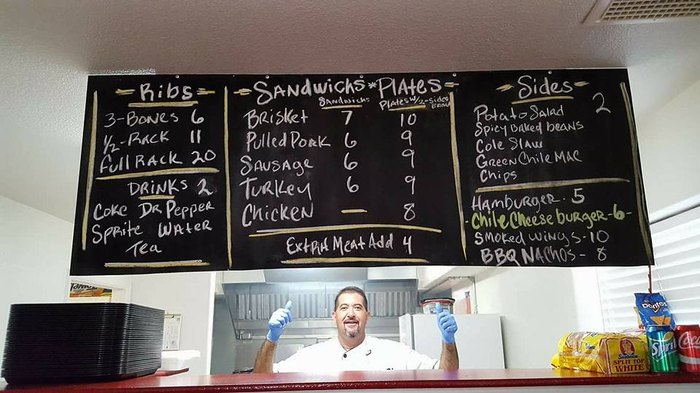 Ribs
3-Bones 6
½-Rack 11
Full Rack 20
Drinks 2
Coke Dr Pepper
Sprite Water
Tea
Sandwichs * Plates
Sandwichs
Brisket 7 10
Pulled Pork 6 9
Sausage 6 9
Turkey 6 9
Chicken — 8
Extra Meat Add 4
Sides
Potato Salad 2
Spicy Baked beans
Cole Slaw
Green Chile Mac
Chips
Hamburger - 5
Chile Cheese burger - 6 -
Smoked wings - 10
BBQ Nachos - 8
Doritos
SPLIT TOP
WHITE
Sprite
Coca